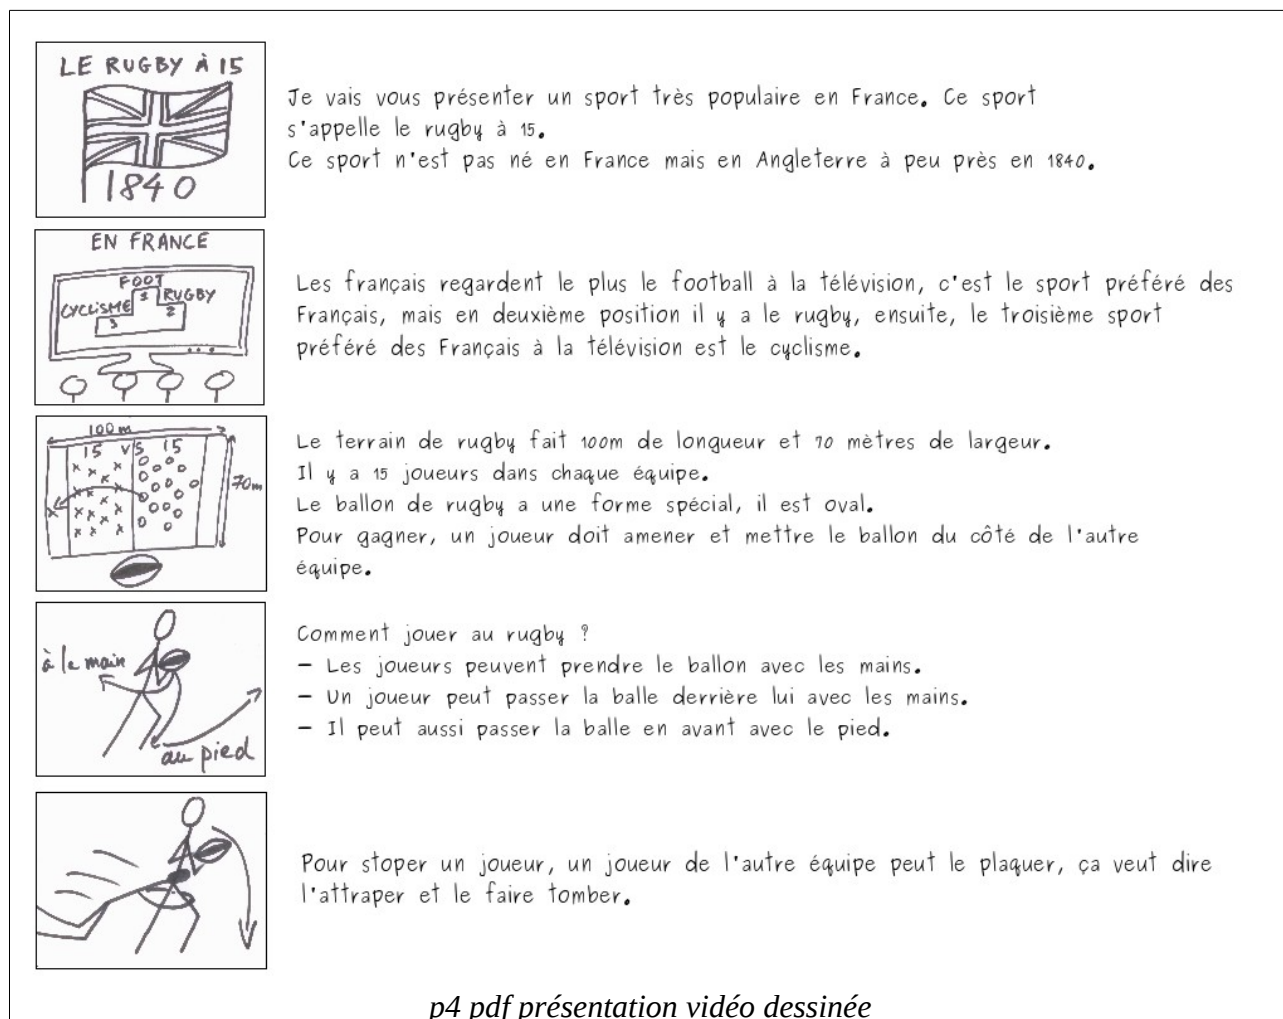 LE RUGBY À 15
1840
Je vais vous présenter un sport très populaire en France. Ce sport
s'appelle le rugby à 15.
Ce sport n'est pas né en France mais en Angleterre à peu près en 1840.
EN FRANCE
FOOT
1
RUGBY
2
CYCLISME
3
Les français regardent le plus le football à la télévision, c'est le sport préféré des
Français, mais en deuxième position il y a le rugby, ensuite, le troisième sport
préféré des Français à la télévision est le cyclisme.
100m
15 VS 15
70m
Le terrain de rugby fait 100m de longueur et 70 mètres de largeur.
Il y a 15 joueurs dans chaque équipe.
Le ballon de rugby a une forme spécial, il est oval.
Pour gagner, un joueur doit amener et mettre le ballon du côté de l'autre
équipe.
à la main
au pied
Comment jouer au rugby ?
– Les joueurs peuvent prendre le ballon avec les mains.
– Un joueur peut passer la balle derrière lui avec les mains.
– Il peut aussi passer la balle en avant avec le pied.
Pour stoper un joueur, un joueur de l'autre équipe peut le plaquer, ça veut dire
l'attraper et le faire tomber.
p4 pdf présentation vidéo dessinée